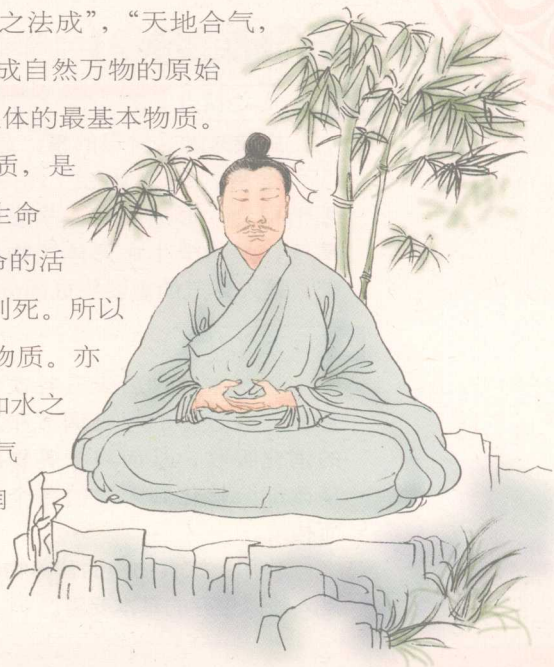 之法成”，“天地合气，
成自然万物的原始
体的最基本物质。
质，是
生命
命的活
则死。所以
物质。亦
如水之
气